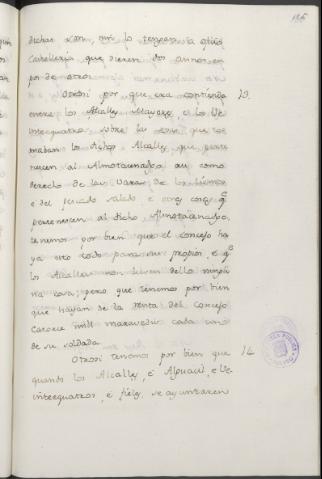 186
dichas son, nin lo tengan a otro
Cavallero que dieren dos annos en
pos de otros
Otrosi por que era contienda 13.
entre los Alcalles Mayores, e los Ve
intequatro sobre las cosas que to
maban los dichos Alcalles que perte
necen al Almotacenadgo asi como
derecho de las Varas de los lienzos
e del pescado salado e otras cosas q
pertenecen al dicho Almotacenadgo,
tenemos por bien que el concejo ha
ya esto todo para su propios, e q
los Alcalles non lieven dello ningu
na cosa; pero que tenemos por bien
que hayan de la renta del Concejo
Catorce mill maravedis cada uno
de su soldada.
Otrosi tenemos por bien que 14.
quando los Alcalles, é Alguacil, e Ve
intequatros, é fieles, se ayuntaren